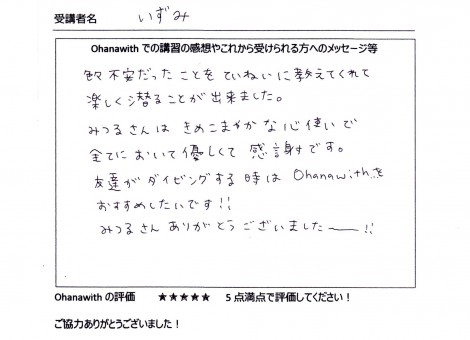 受講者名 いずみ
Ohanawith での講習の感想やこれから受けられる方へのメッセージ等
色々不安だったことをていねいに教えてくれて
楽しく潜ることが出来ました。
みつるさんはきめこまやかな心使いで
全てにおいて優しくて感謝です。
友達がダイビングする時はOhanawithを
おすすめしたいです!!
みつるさんありがとうございましたー!!
Ohanawith の評価 ★★★★★ 5 点満点で評価してください！
ご協力ありがとうございました！